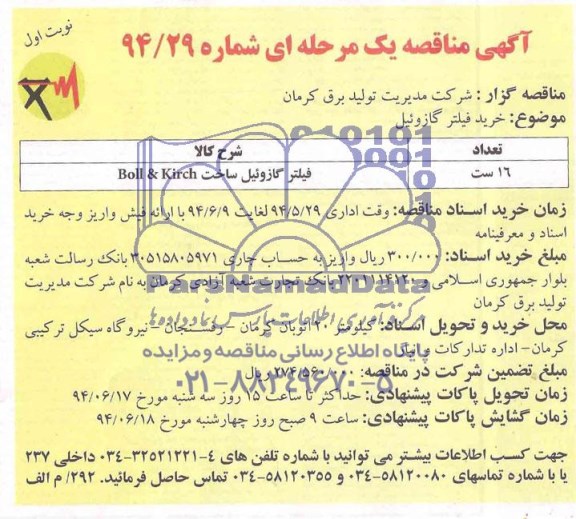 نوبت اول
آگهی مناقصه یک مرحله ای شماره ۹۴/۲۹
مناقصه گزار : شرکت مدیریت تولید برق کرمان
موضوع: خرید فیلتر گازوئیل
شرح کالا تعداد
فیلتر گازوئیل ساخت Boll & Kirch ۱۶ ست
زمان خرید اسناد مناقصه: وقت اداری ۹۴/۵/۲۹ لغایت ۹۴/۶/۹ با ارائه فیش واریز وجه خرید
اسناد و معرفینامه
مبلغ خرید اسناد: ۳۰۰/۰۰۰ ریال واریز به حساب جاری ۳۰۵۱۵۸۰۵۹۷۱ بانک رسالت شعبه
بلوار جمهوری اسلامی و بانک تجارت شعبه آزادی کرمان به نام شرکت مدیریت
تولید برق کرمان
محل خرید و تحویل اسناد: کیلومتر ۲۰ اتوبان کرمان – رفسنجان – نیروگاه سیکل ترکیبی
کرمان – اداره تدارکات
مبلغ تضمین شرکت در مناقصه: ۲۷۴/۵۶۰/۰۰۰ ریال
زمان تحویل پاکات پیشنهادی: حداکثر تا ساعت ۱۵ روز سه شنبه مورخ ۹۴/۰۶/۱۷
زمان گشایش پاکات پیشنهادی: ساعت ۹ صبح روز چهارشنبه مورخ ۹۴/۰۶/۱۸
جهت کسب اطلاعات بیشتر می توانید با شماره تلفن های ۴-۳۲۵۲۱۲۲۱-۰۳۴ داخلی ۲۳۷
یا با شماره تماسهای ۵۸۱۲۰۰۸۰-۰۳۴ و ۵۸۱۲۰۳۵۵-۰۳۴ تماس حاصل فرمائید. ۲۹۲/ م الف
ParsNamadData
مرکز فرآوری اطلاعات پارس نماد داده ها
پایگاه اطلاع رسانی مناقصه و مزایده
۰۲۱-۸۸۳۴۹۶۷۰-۵